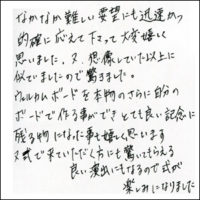 なかなか難しい要望にも迅速かつ
的確に応えて下さって大変嬉しく
思いました。又、想像していた以上に
似ていましたので驚きました。
ウェルカムボードを本物のさらに自分の
ボードで作る事ができとても良い記念に
残る物になった事も嬉しく思います
又式で来ていただく方にも驚いてもらえる
良い演出にもなるので式が
楽しみになりました